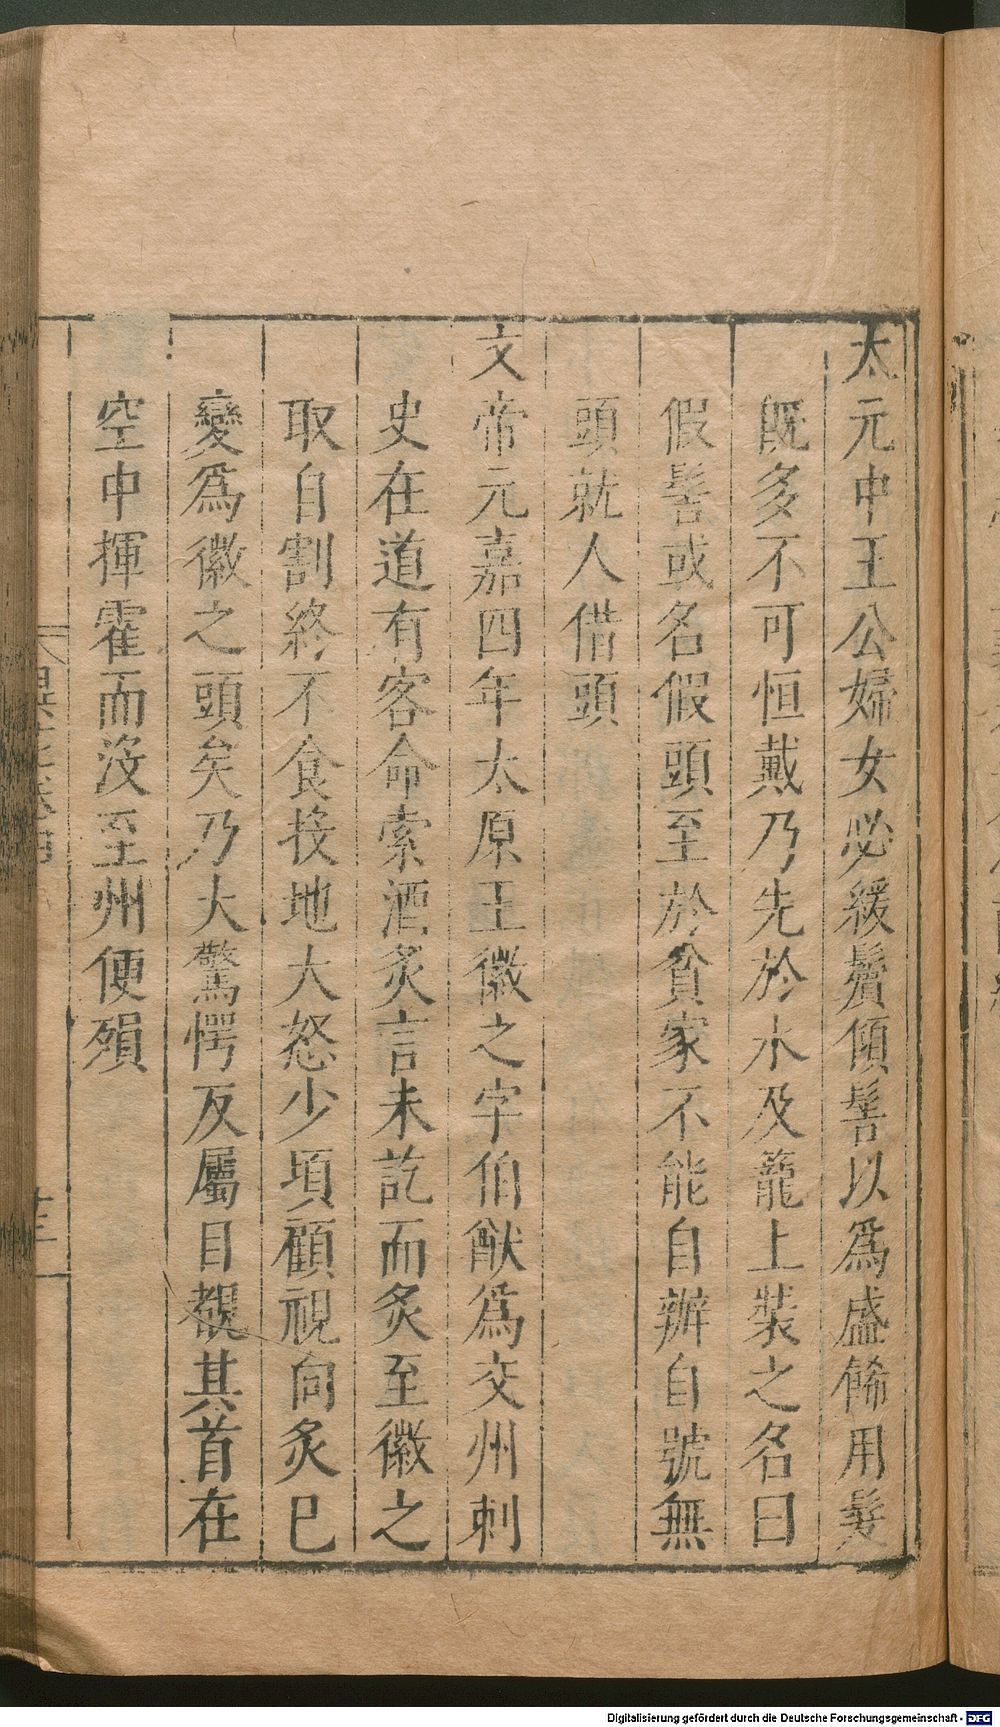 太元中王公婦女必緩鬢傾髻以爲盛餙用髮
既多不可恒戴乃先於水及籠上裝之名曰
假髻或名假頭至於貧家不能自辦自號無
頭就人借頭
文帝元嘉四年太原王徽之字伯猷爲交州刺
史在道有客命索酒炙言未訖而炙至徽之
取自割終不食投地大怒少頃顧視向炙巳
變爲徽之頭矣乃大驚愕反屬目覩其首在
空中揮霍而沒至州便殞
Digitalisierung gefördert durch die Deutsche Forschungsgemeinschaft - DFG